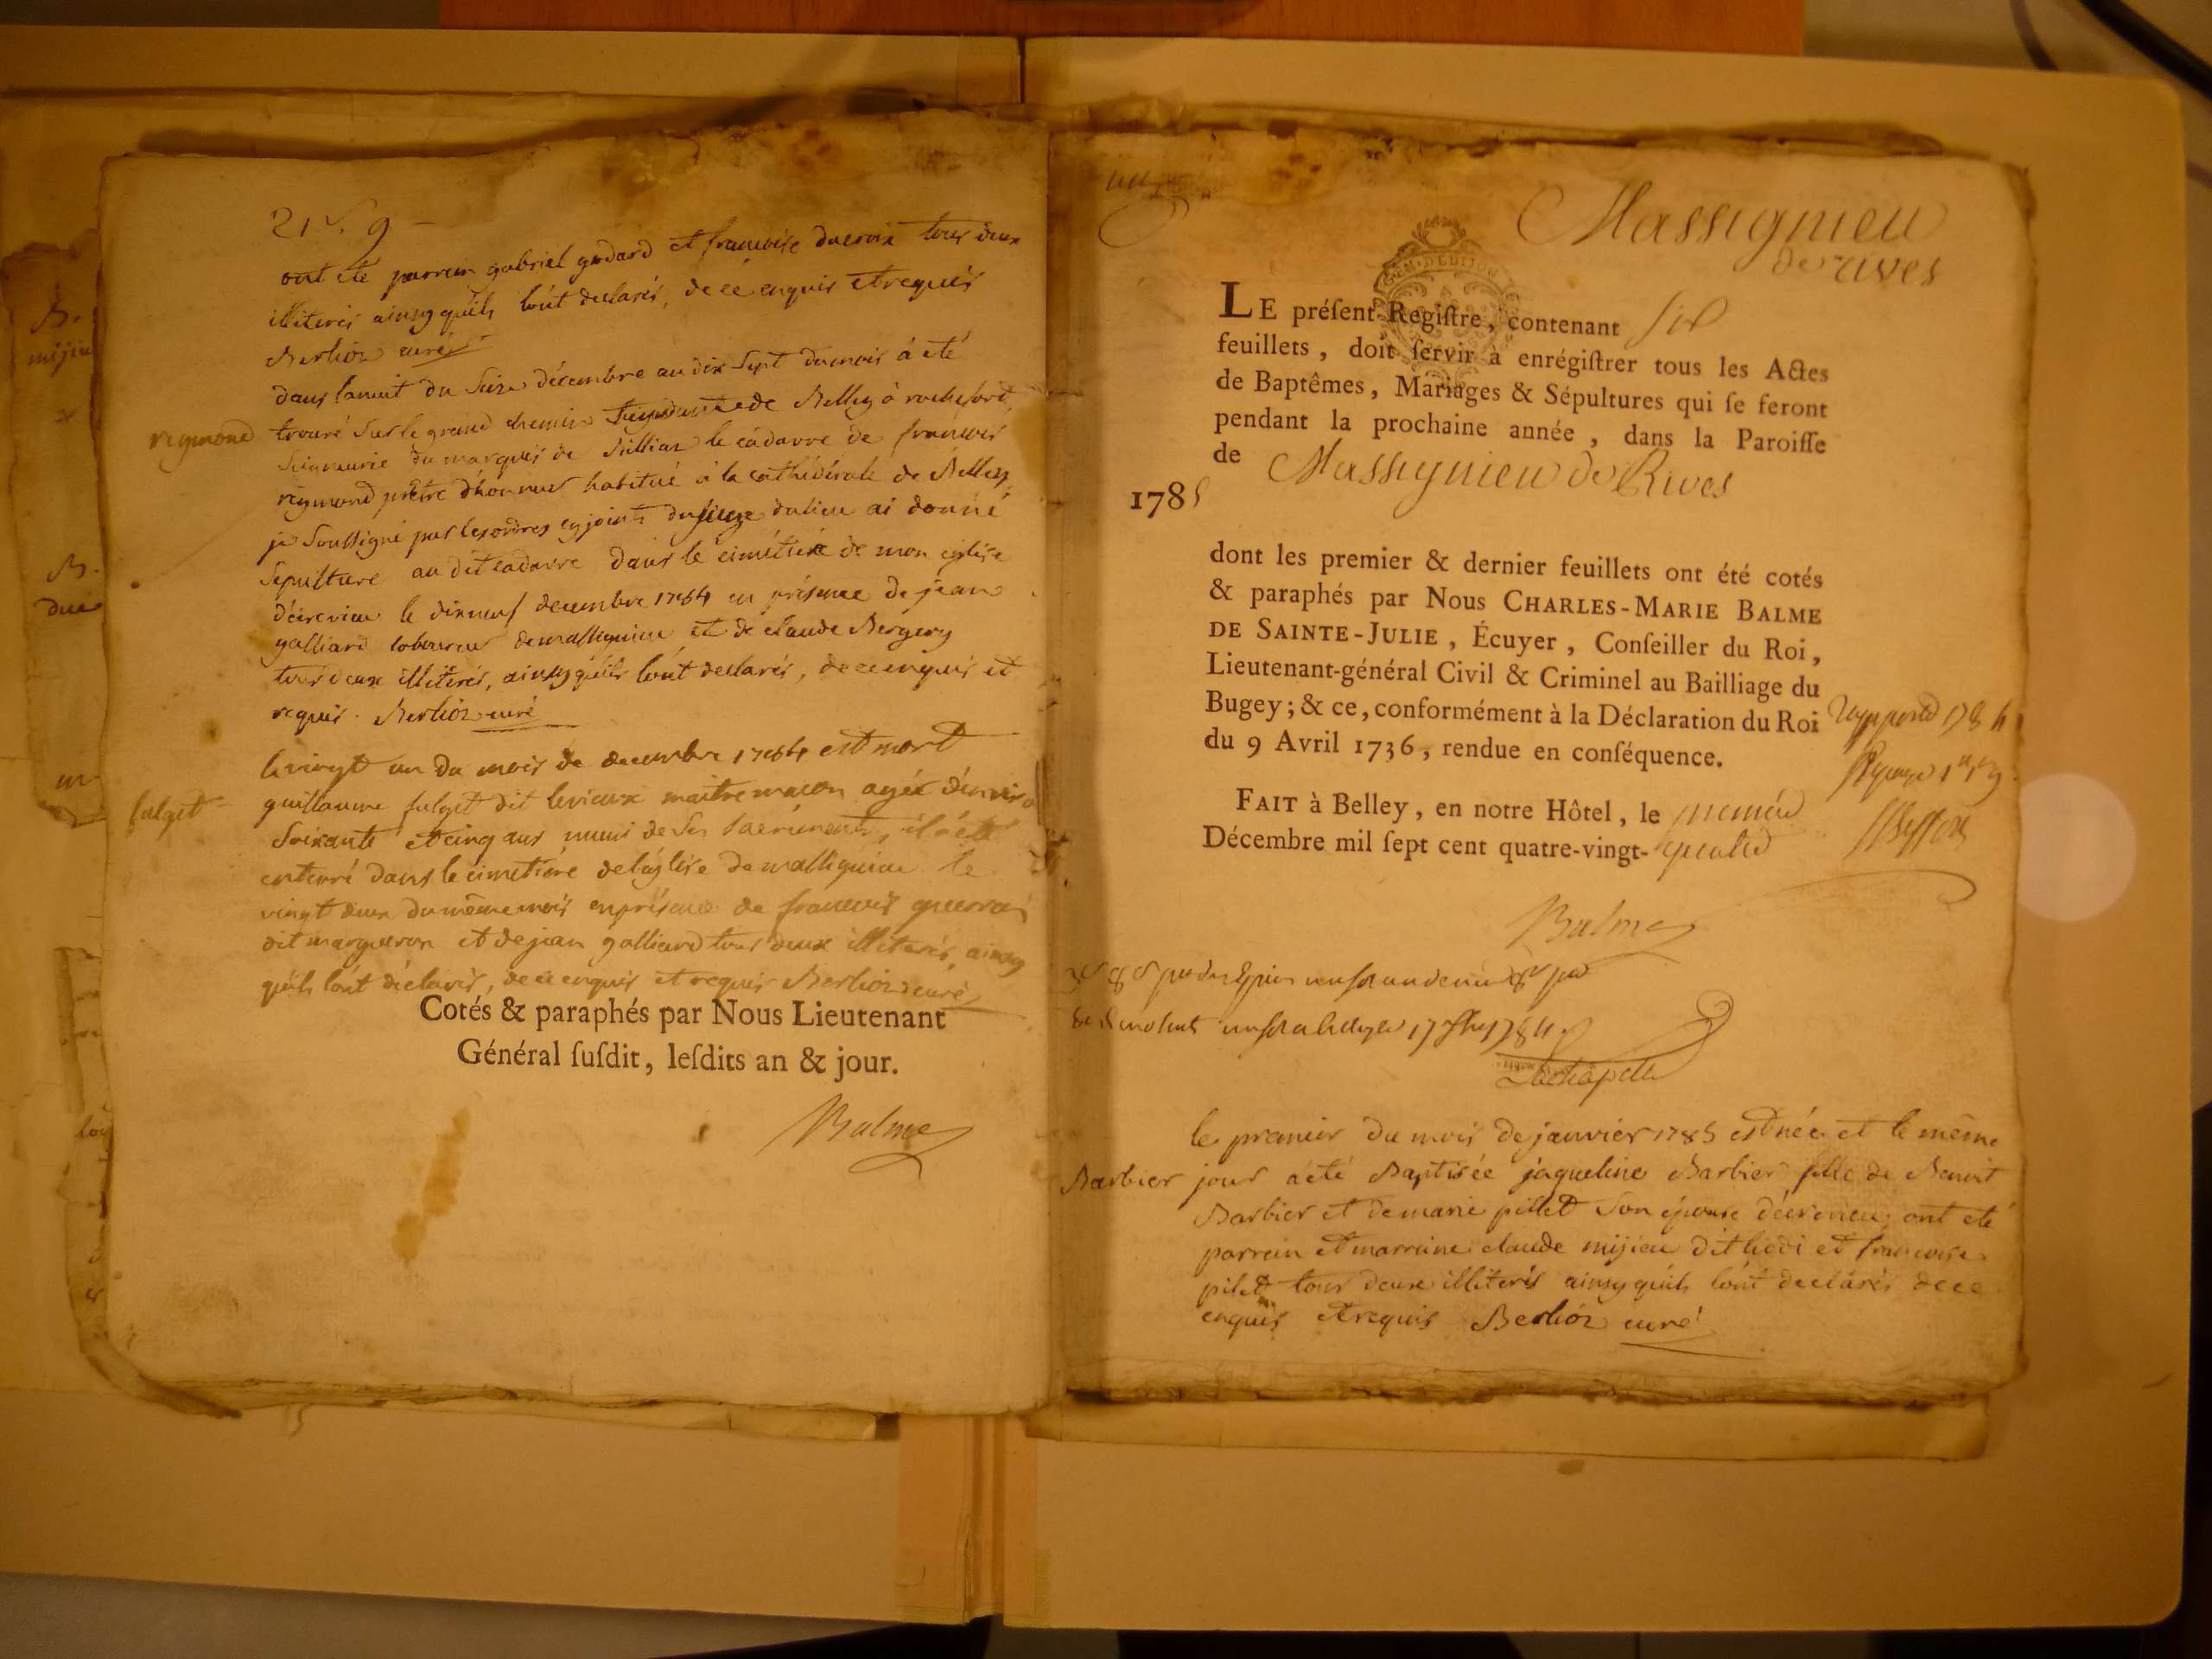 ont été parrein gabriel godard et francoise ducroix tous deux
illiterés ainsy quils lont declarés, de ce enquis et requis
Berlioz curé
dans la nuit du seize décembre au dix sept du mois á eté
reymond
trouvé sur le grand chemin de Belley à rochefort,
seigneurie du marquis de le cadavre de francois
reymond prêtre d'honneur habitué à la cathédrale de Belley
je soussigné par les ordres cy joints du juge du lieu ai donné
sepulture au dit cadavre dans le cimétiere de mon église
le dixneuf decembre 1784 en présence de jean
galliard laboureur de massignieu et de claude Bergery
tous deux illiterés, ainsy quils lont declarés, de ce enquis et
requis. Berlioz curé
le vingt un du mois de decembre 1784 est mort
fulget
guillaume fulget dit levieux maitre macon agée d'environ
soixante et cinq ans muni de ses sacréments, il a eté
enterré dans le cimetiére de léglise de massignieu le
vingt deux du même mois en présence de francois
dit margueron et de jean galliard tous deux illiterés, ainsy
quils lont déclarés, de ce enquis et requis Berlioz curé
Cotés & paraphés par Nous Lieutenant
Général ſuſdit, leſdits an & jour.
Balme
Massignieu
de rives
GEN. DE DIJON
LE préſent Regiſtre, contenant six
feuillets, doit ſervir à enrégiſtrer tous les Actes
de Baptêmes, Mariages & Sépultures qui ſe feront
pendant la prochaine année, dans la Paroiſſe
de Massignieu de Rives
1785
dont les premier & dernier feuillets ont été cotés
& paraphés par Nous CHARLES-MARIE BALME
DE SAINTE-JULIE, Écuyer, Conſeiller du Roi,
Lieutenant-général Civil & Criminel au Bailliage du
Bugey; & ce, conformément à la Déclaration du Roi
du 9 Avril 1736, rendue en conſéquence.
FAIT à Belley, en notre Hôtel, le premier
Décembre mil ſept cent quatre-vingt-quatre
Balme
le premier du mois de janvier 1785 est née et le même
Barbier
jour a été Baptisée jaqueline Barbier fille de Benoit
Barbier et de marie pillet son épouse ont eté
parrein et marreine claude mijieu dit et francoise
pilet tous deux illiterés ainsy quils lont declarés de ce
enquis et requis Berlioz curé